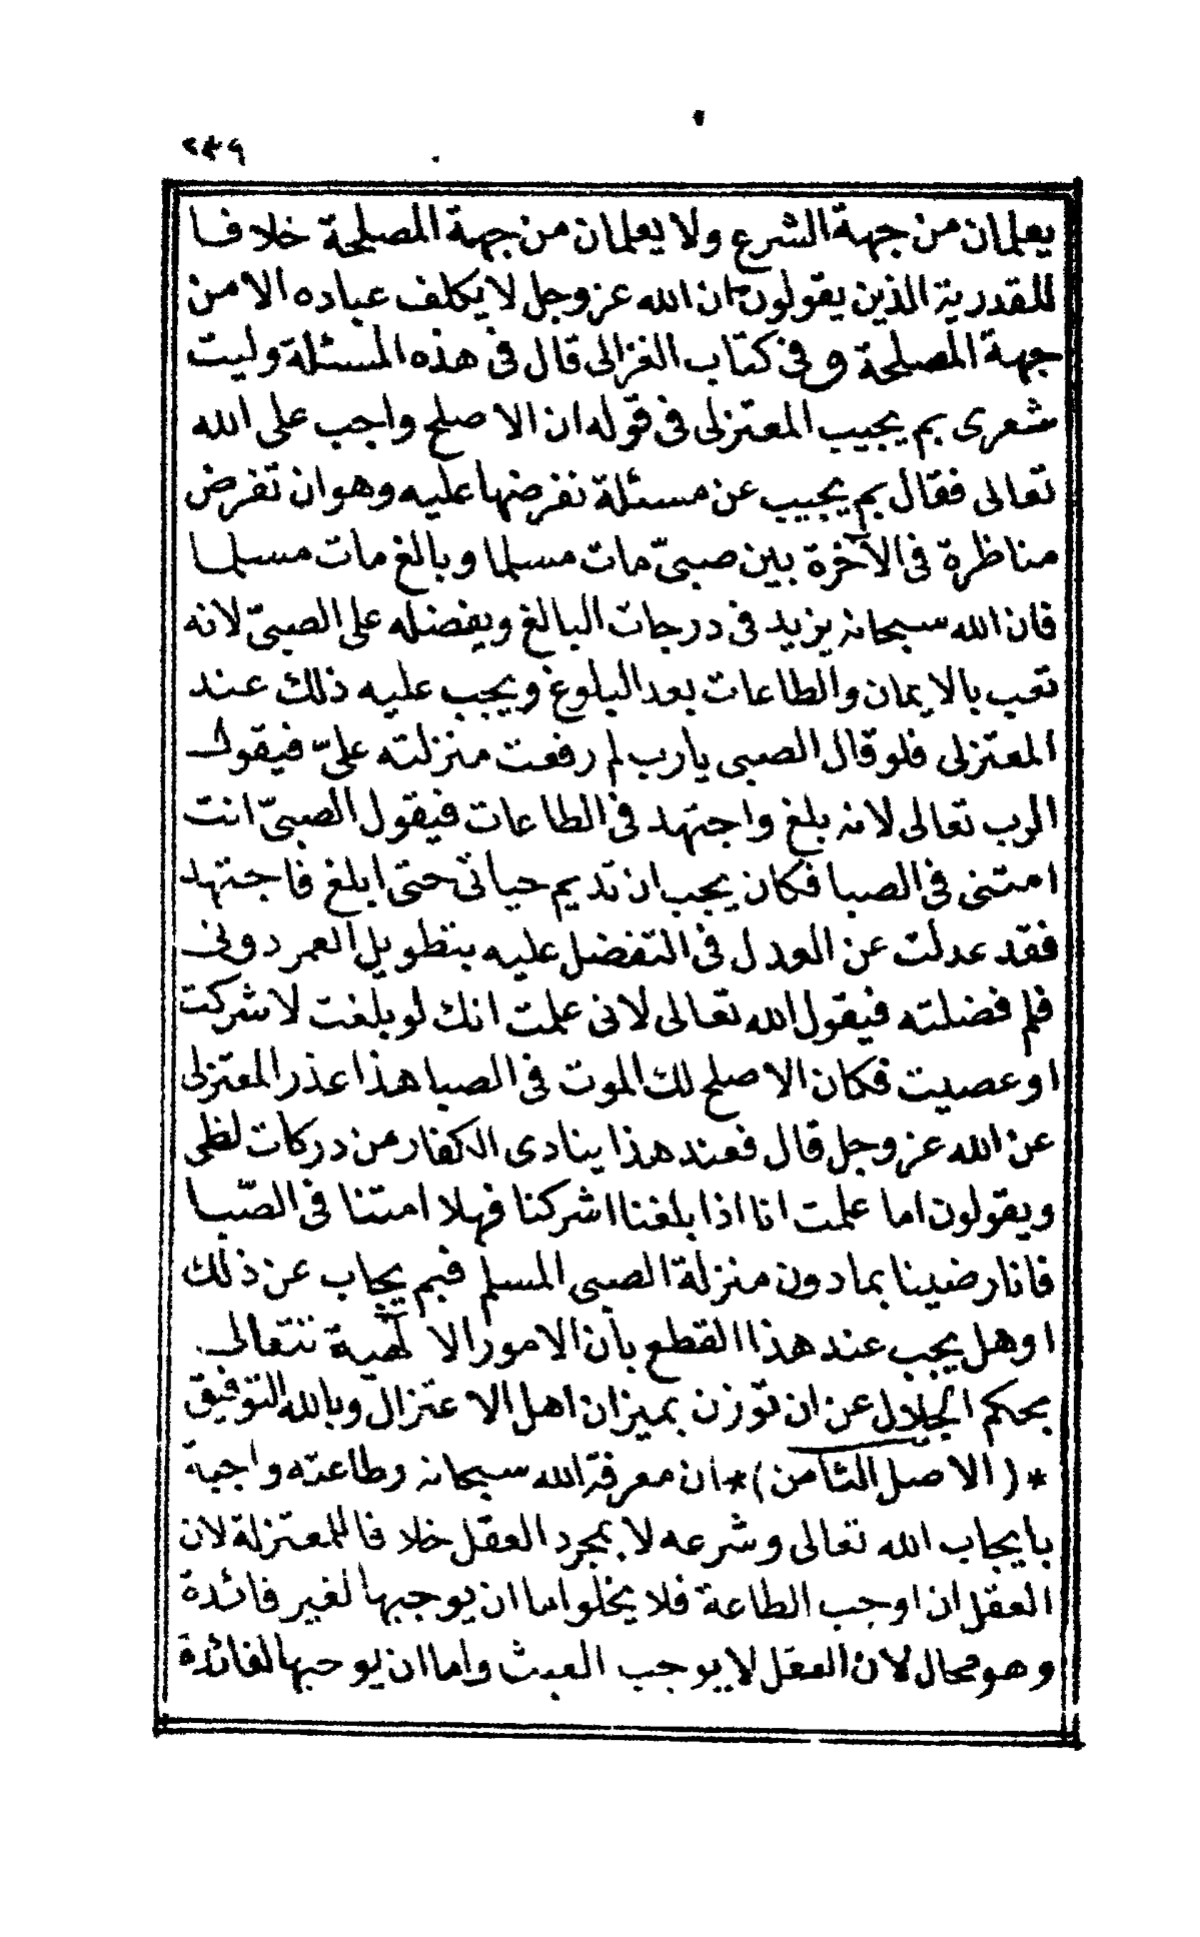 ٢٣٩
يعلمان من جهة الشرع ولا يعلمان من جهة المصلحة خلافا
للقدرية الذين يقولون ان الله عز وجل لا يكلف عباده الا من
جهة المصلحة وفى كتاب الغزالى قال فى هذه المسئلة وليت
شعرى بم يجيب المعتزلى فى قوله ان الاصلح واجب على الله
تعالى فقال بم يجيب عن مسئلة نفرضها عليه وهو ان تفرض
مناظرة فى الآخرة بين صبىّ مات مسلما وبالغ مات مسلما
فان الله سبحانه يزيد فى درجات البالغ ويفضله على الصبىّ لانه
تعب بالايمان والطاعات بعد البلوغ ويجب عليه ذلك عند
المعتزلى فلو قال الصبى يارب لم رفعت منزلته علىّ فيقول
الرب تعالى لانه بلغ واجتهد فى الطاعات فيقول الصبىّ انت
امتنى فى الصبا فكان يجب ان تديم حياتى حتى ابلغ فاجتهد
فقد عدلت عن العدل فى التفضل عليه بتطويل العمر دونى
فلم فضلته فيقول الله تعالى لانى علمت انك لو بلغت لاشركت
او عصيت فكان الاصلح لك الموت فى الصبا هذا عذر المعتزلى
عن الله عز وجل قال فعند هذا ينادى الكفار من دركات لظى
ويقولون اما علمت انا اذا بلغنا اشركنا فهلا امتنا فى الصّبا
فانا رضينا بما دون منزلة الصبى المسلم فبم يجاب عن ذلك
او هل يجب عند هذا القطع بأن الامور الالهية تتعالى
بحكم الجلال عن ان توزن بميزان اهل الاعتزال وبالله التوفيق
*(الاصل الثامن)* ان معرفة الله سبحانه وطاعته واجبة
بايجاب الله تعالى وشرعه لا بمجرد العقل خلافا للمعتزلة لان
العقل ان اوجب الطاعة فلا يخلو اما ان يوجبها لغير فائدة
وهو محال لان العقل لا يوجب العبث واما ان يوجبها لفائدة